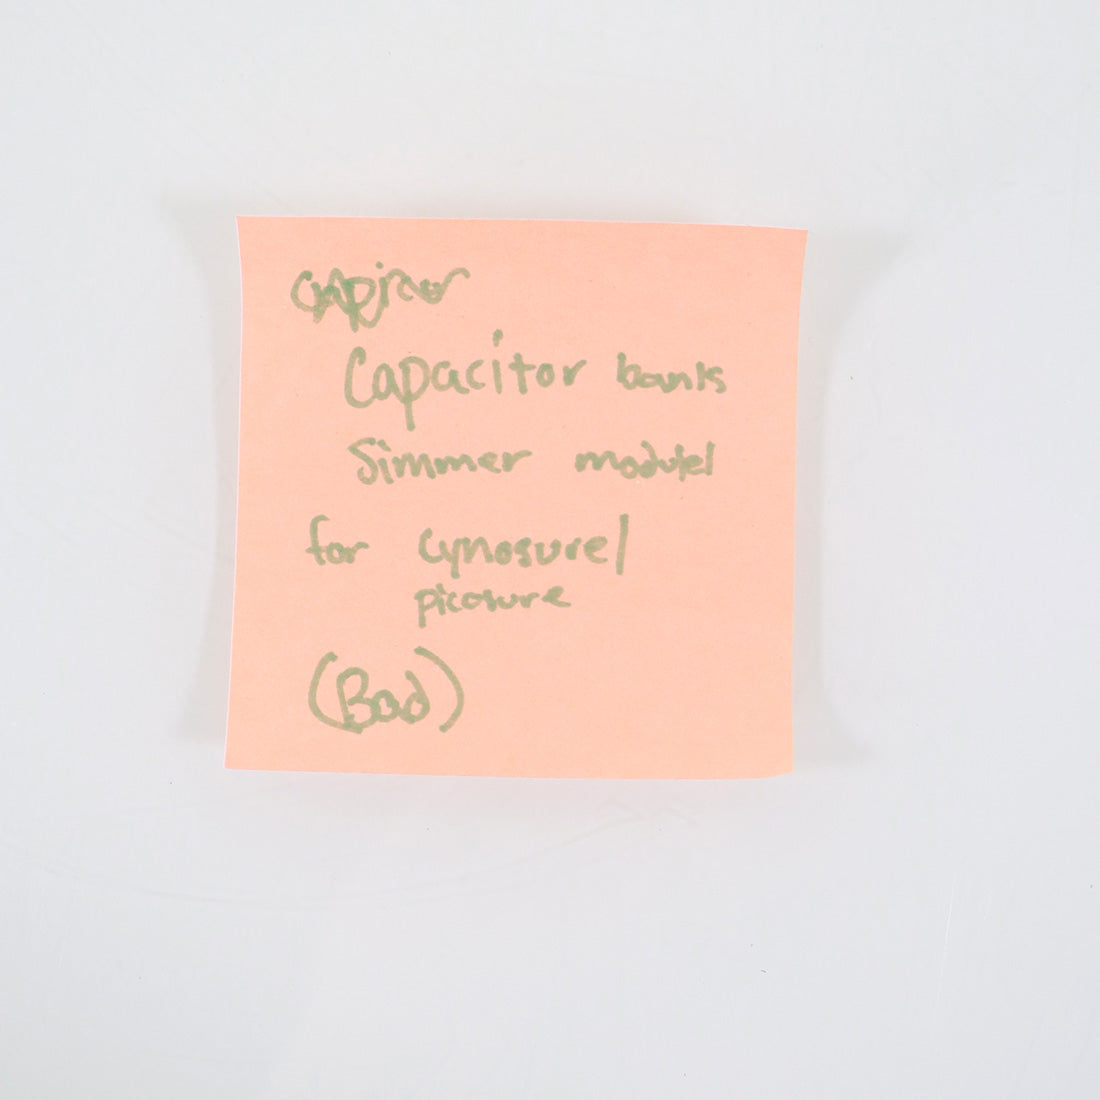 Capacitor banks
Simmer modulel
for cynosure/
picosure
(Bad)